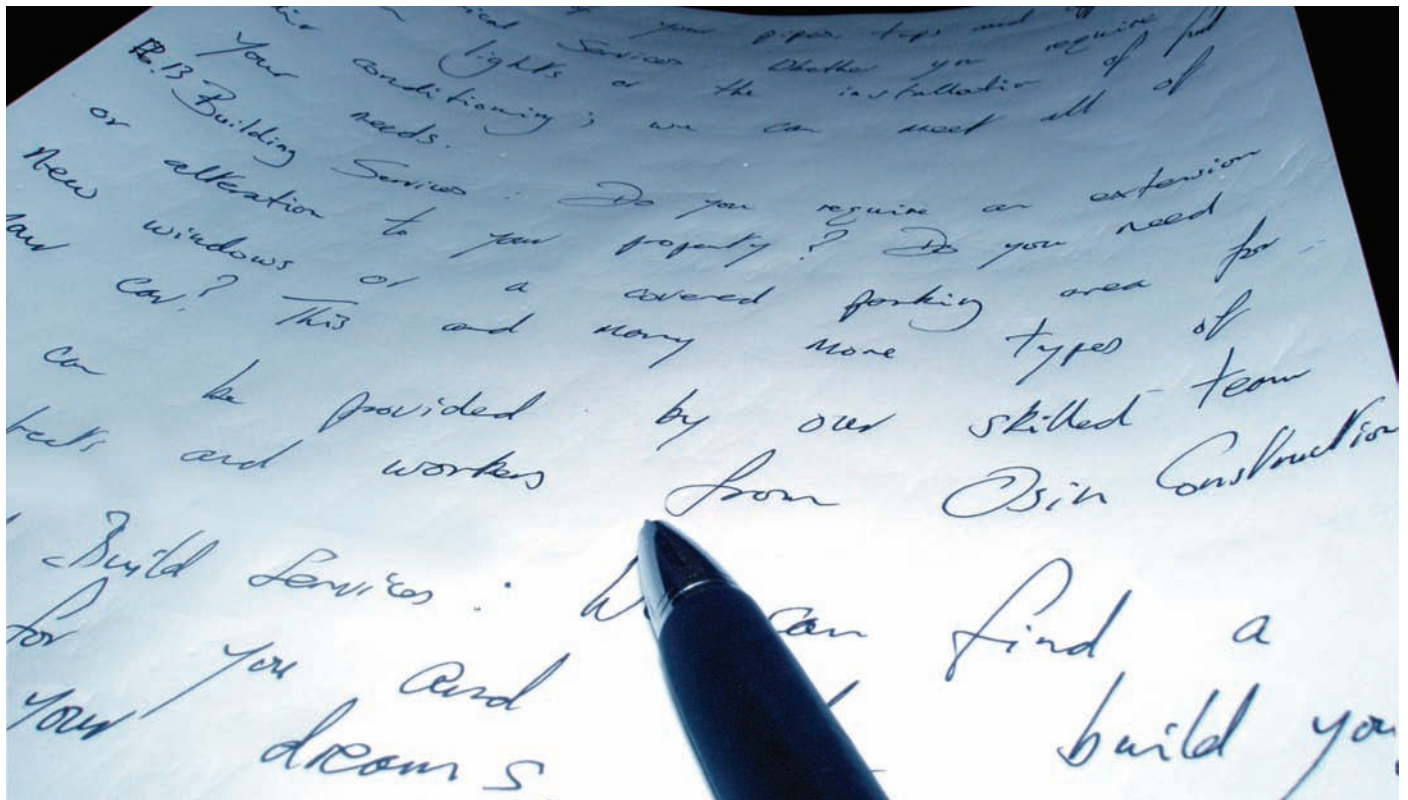 your pipes taps and
Services whether you require
lights or the installation of
Your conditioning, we can meet all of
needs.
Pg.13 Building Services: Do you require an extension
or alteration to your property? Do you need
new windows or a covered parking area for
your car? This and many more types of
can be provided by our skilled team
and workers from Osin Construction
Build Services: We can find a
for you and build you
your dreams.